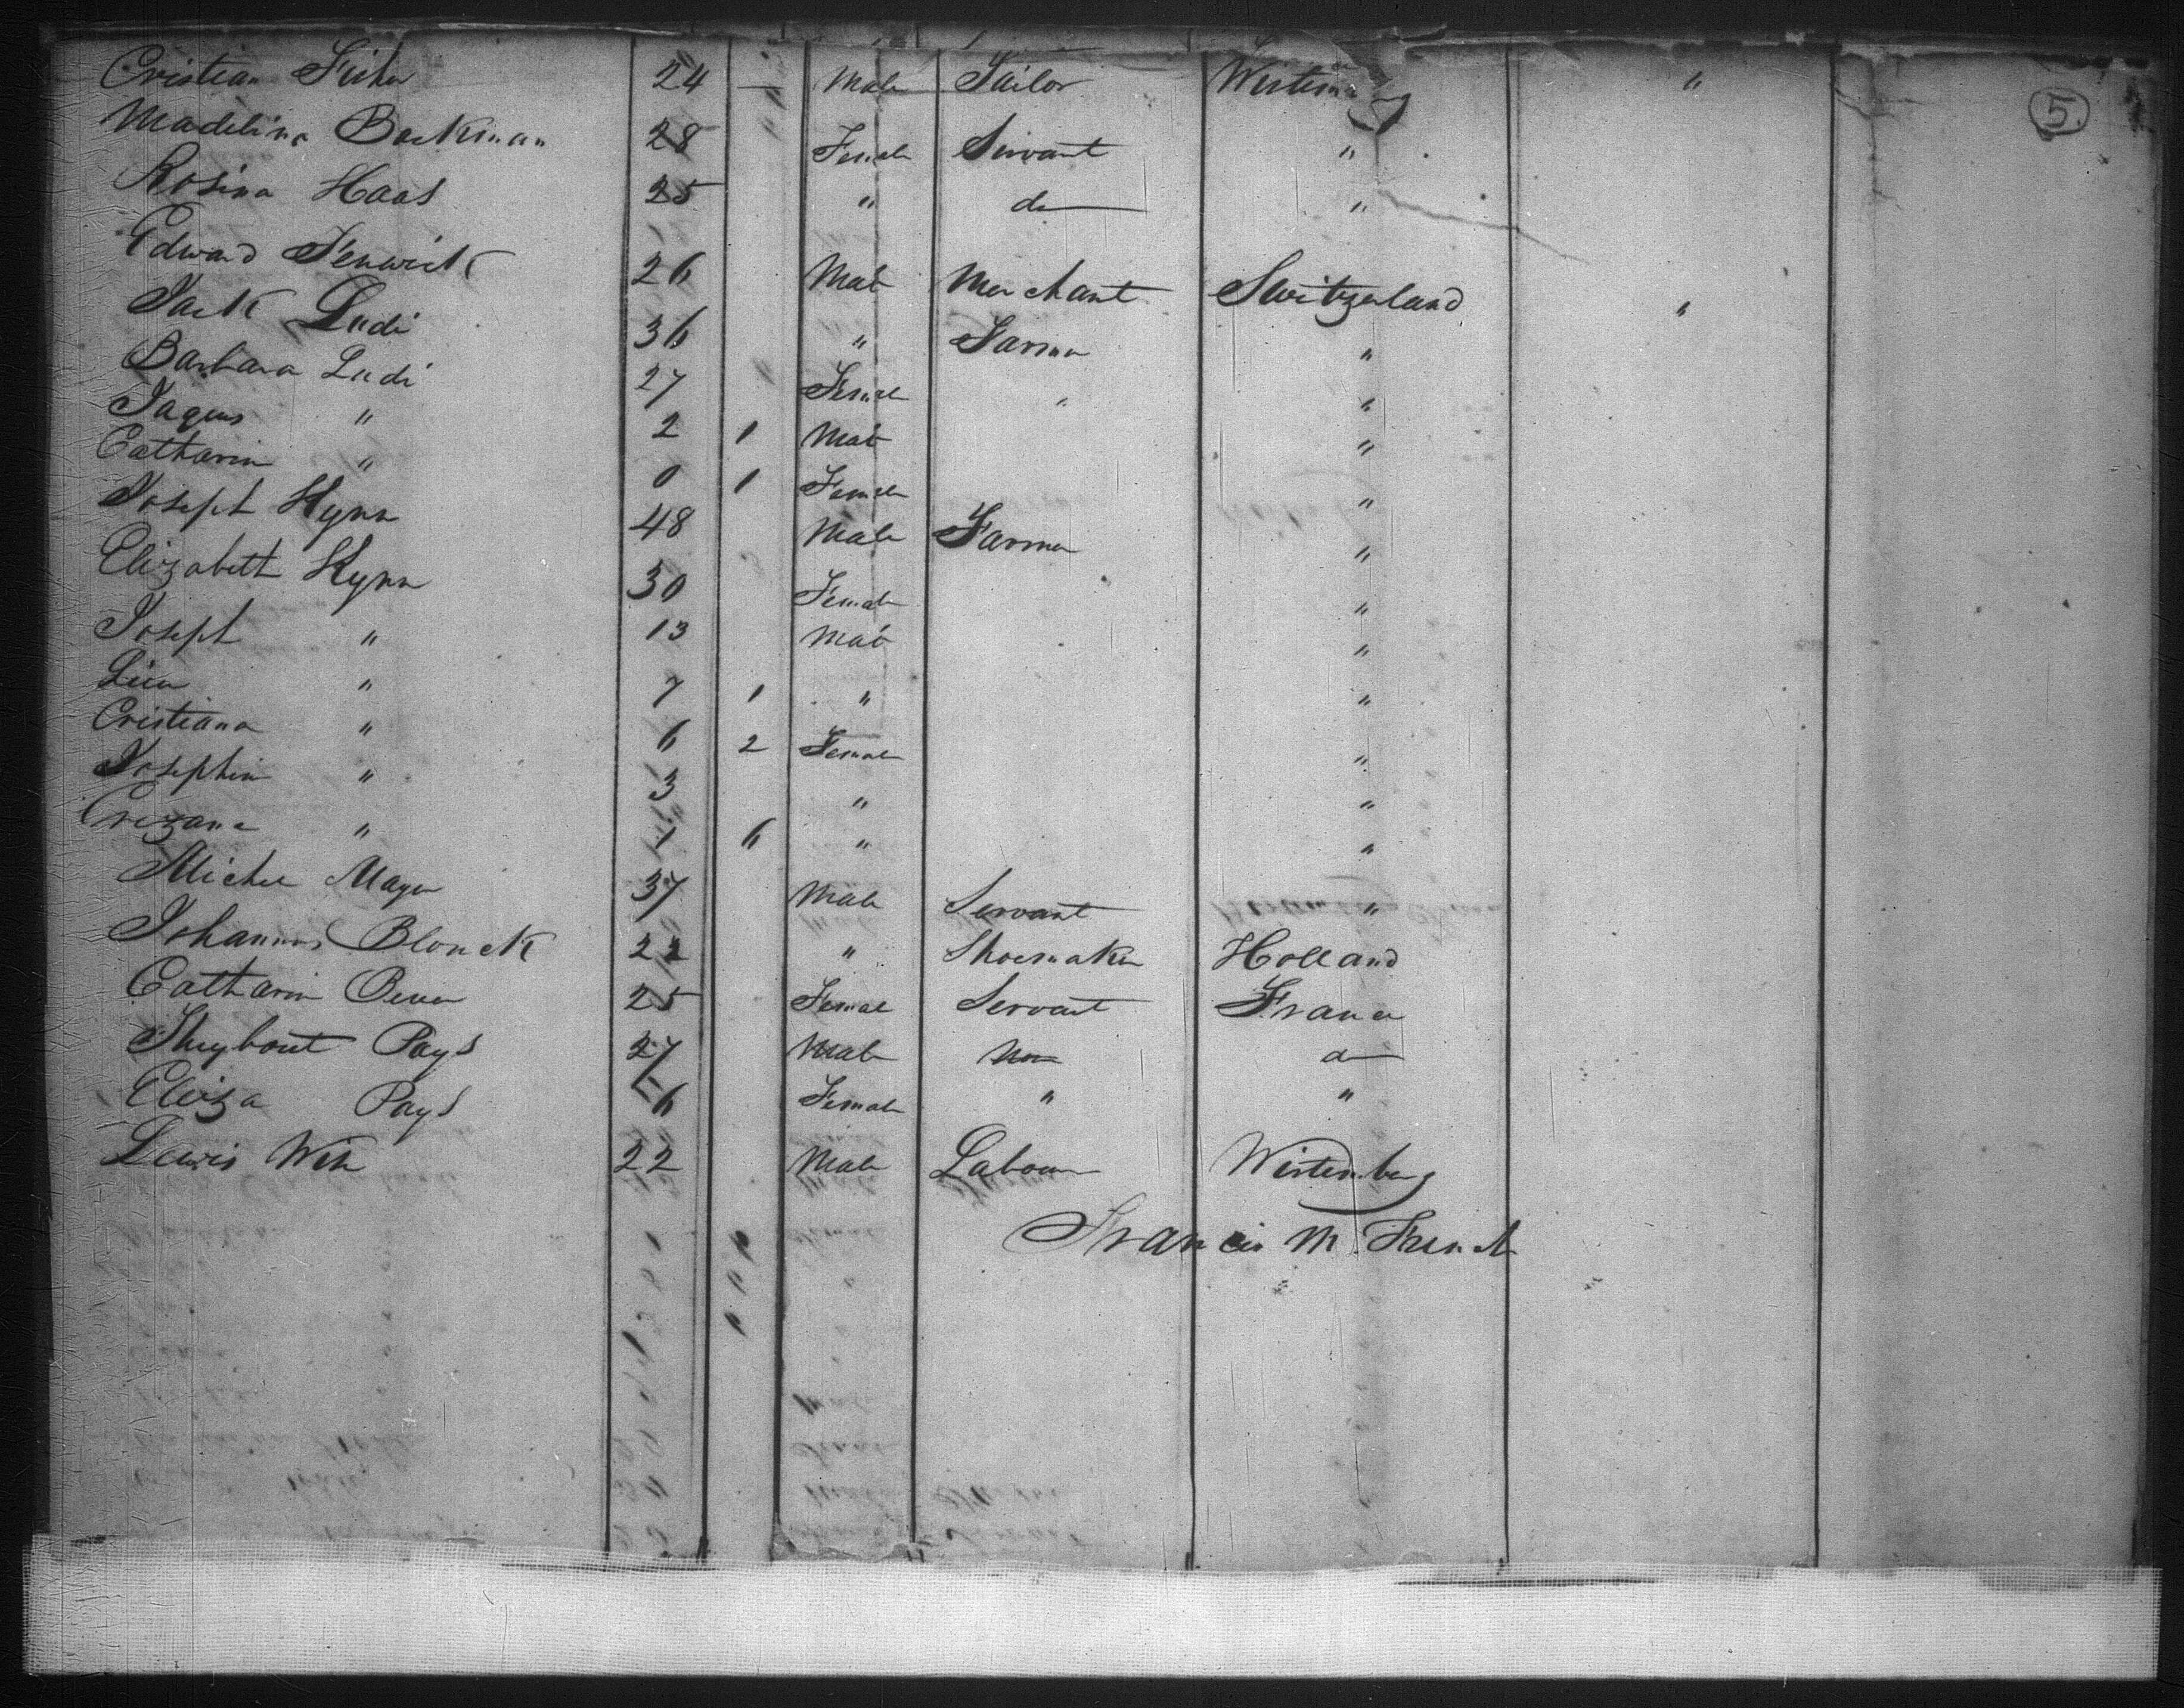 5.
Cristian Fisher 24 — Male Tailor "
Madelina Backman 28 Female Servant "
Rosina Haas 25 " do "
Edward Fenwick 26 Male Merchant Switzerland "
Jack Ludi 36 " Farmer "
Barbara Ludi 27 Female " "
Jaques " 2 1 Male "
Catharin " 0 1 Female "
Joseph Hynn 48 Male Farmer "
Elizabeth Hynn 30 Female "
Joseph " 13 Male "
" 7 1 " "
Cristiana " 6 2 Female "
Josephin " 3 " "
" 1 6 " "
Michel Mayer 37 Male Servant "
Johannes Blonck 22 " Shoemaker Holland
Catharin 25 Female Servant France
Pays 27 Male Non do
Eliza Pays 6 Female " "
Lewis 22 Male Labour Wirtemberg
Francis M. French